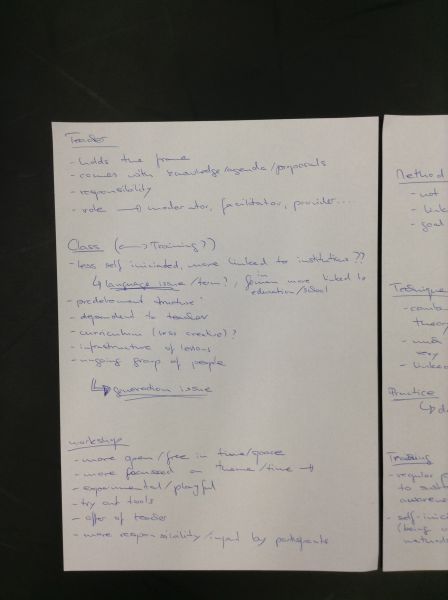 Teacher
- holds the frame
- comes with knowledge/agenda/proposals
- responsibility
- role → moderator, facilitator, provider...
Class (<-> Training?)
- less self iniciated, more linked to institutions??
↳ language issue/term?, in german more linked to education/school
- predeterment structure
- dependent to teacher
- curriculum (less creative)?
- infrastructure of lessons
- ongoing group of people
↳ generation issue
workshop
- more open/free in time/space
- more focussed on theme/time →
- experimental/playful
- try out tools
- offer of teacher
- more responsibility/input by participants
Method
- not
- link
- goal
Technique
theory
- very
- linked
Practice
Training
- regular
to
awarene
- self-inici
(being